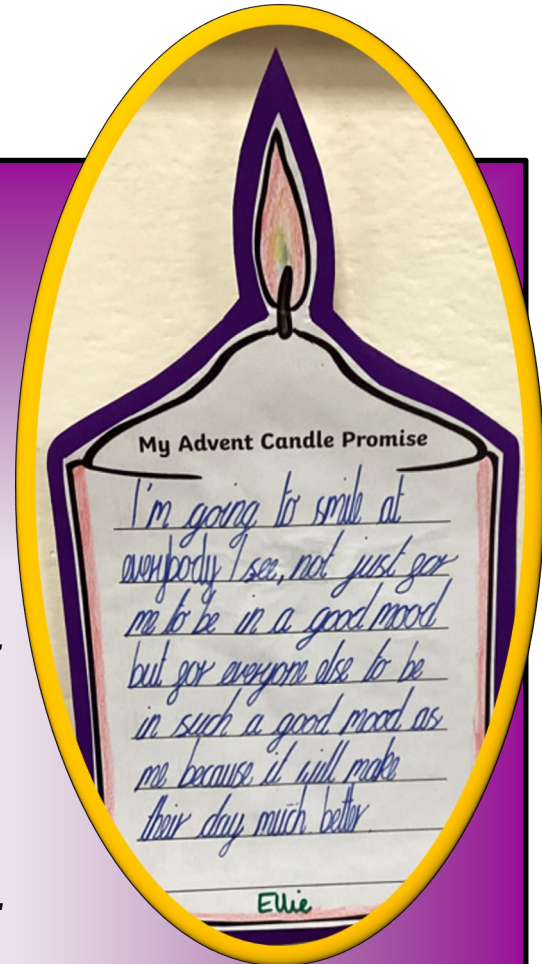 My Advent Candle Promise
I'm going to smile at
everybody I see, not just for
me to be in a good mood
but for everyone else to be
in such a good mood as
me because it will make
their day much better.
Ellie